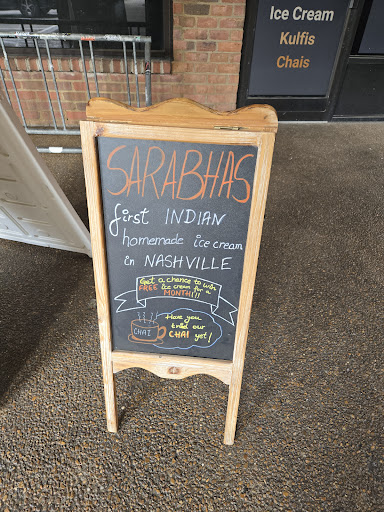 Ice Cream
Kulfis
Chais
SARABHAS
first INDIAN
homemade ice cream
in NASHVILLE
Get a chance to win
FREE ice cream for a
MONTH!!!
Have you
tried our
CHAI yet!
CHAI